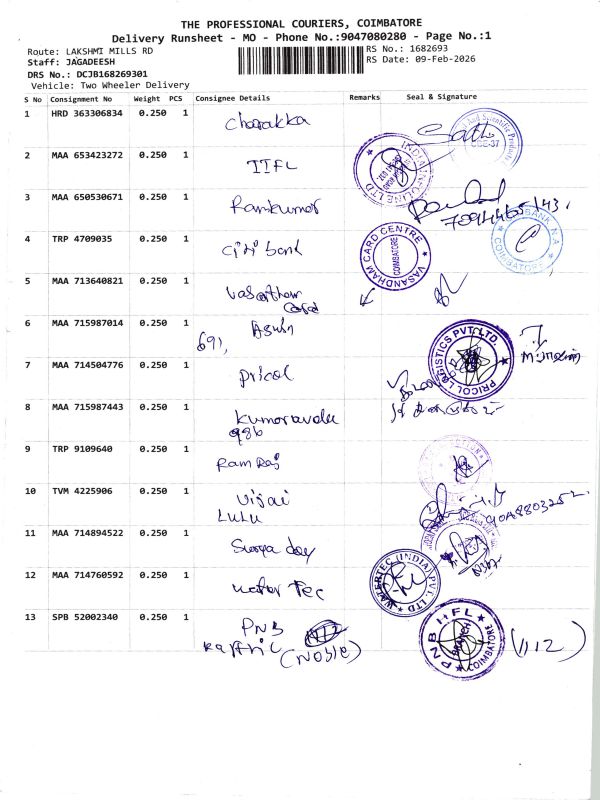 THE PROFESSIONAL COURIERS, COIMBATORE
Delivery Runsheet - MO - Phone No.:9047080280 - Page No.:1
Route: LAKSHMI MILLS RD
RS No.: 1682693
Staff: JAGADEESH
RS Date: 09-Feb-2026
DRS No.: DCJB168269301
Vehicle: Two Wheeler Delivery
S No Consignment No Weight PCS Consignee Details Remarks Seal & Signature
1 HRD 363306834 0.250 1 Charakka
2 MAA 653423272 0.250 1 IIFL
3 MAA 650530671 0.250 1 Ramkumar
4 TRP 4709035 0.250 1 citi bank
CITIBANK N.A COIMBATORE
VASANDHAM CARD CENTRE COIMBATORE
5 MAA 713640821 0.250 1 Vasantham
card
6 MAA 715987014 0.250 1
691,
PRICOL LOGISTICS PVT. LTD.
7 MAA 714504776 0.250 1 pricol
8 MAA 715987443 0.250 1 Kumaravelu
986
9 TRP 9109640 0.250 1 Ram Raj
10 TVM 4225906 0.250 1 Vijai
LULU
11 MAA 714894522 0.250 1 Surya day
12 MAA 714760592 0.250 1 water Tec
WATERTEC (INDIA) PVT. LTD
13 SPB 52002340 0.250 1 PNB
(Noble)
PNB HFL BRANCH COIMBATORE
(1112)